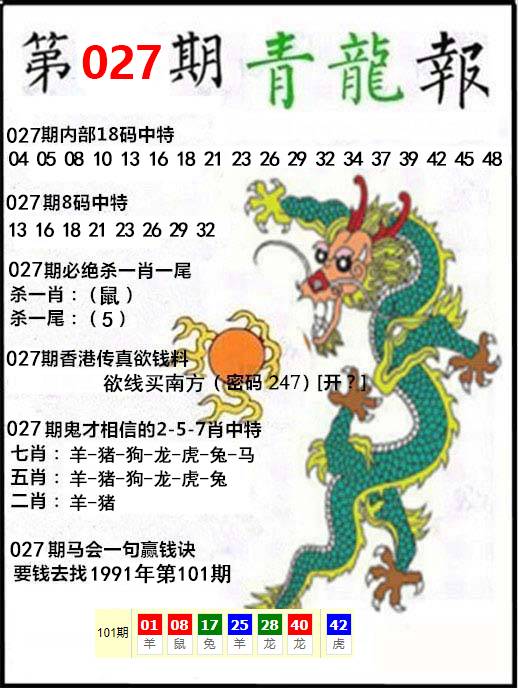 第027期青龍報
027期内部18码中特
04 05 08 10 13 16 18 21 23 26 29 32 34 37 39 42 45 48
027期8码中特
13 16 18 21 23 26 29 32
027期必绝杀一肖一尾
杀一肖：（鼠）
杀一尾：（5）
027期香港传真欲钱料
欲线买南方（密码 247）[开？]
027期鬼才相信的2-5-7肖中特
七肖：羊-猪-狗-龙-虎-兔-马
五肖：羊-猪-狗-龙-兔
二肖：羊-猪
027期马会一句赢钱诀
要钱去找1991年第101期
101期 01 08 17 25 28 40 42
羊 鼠 兔 羊 龙 龙 虎